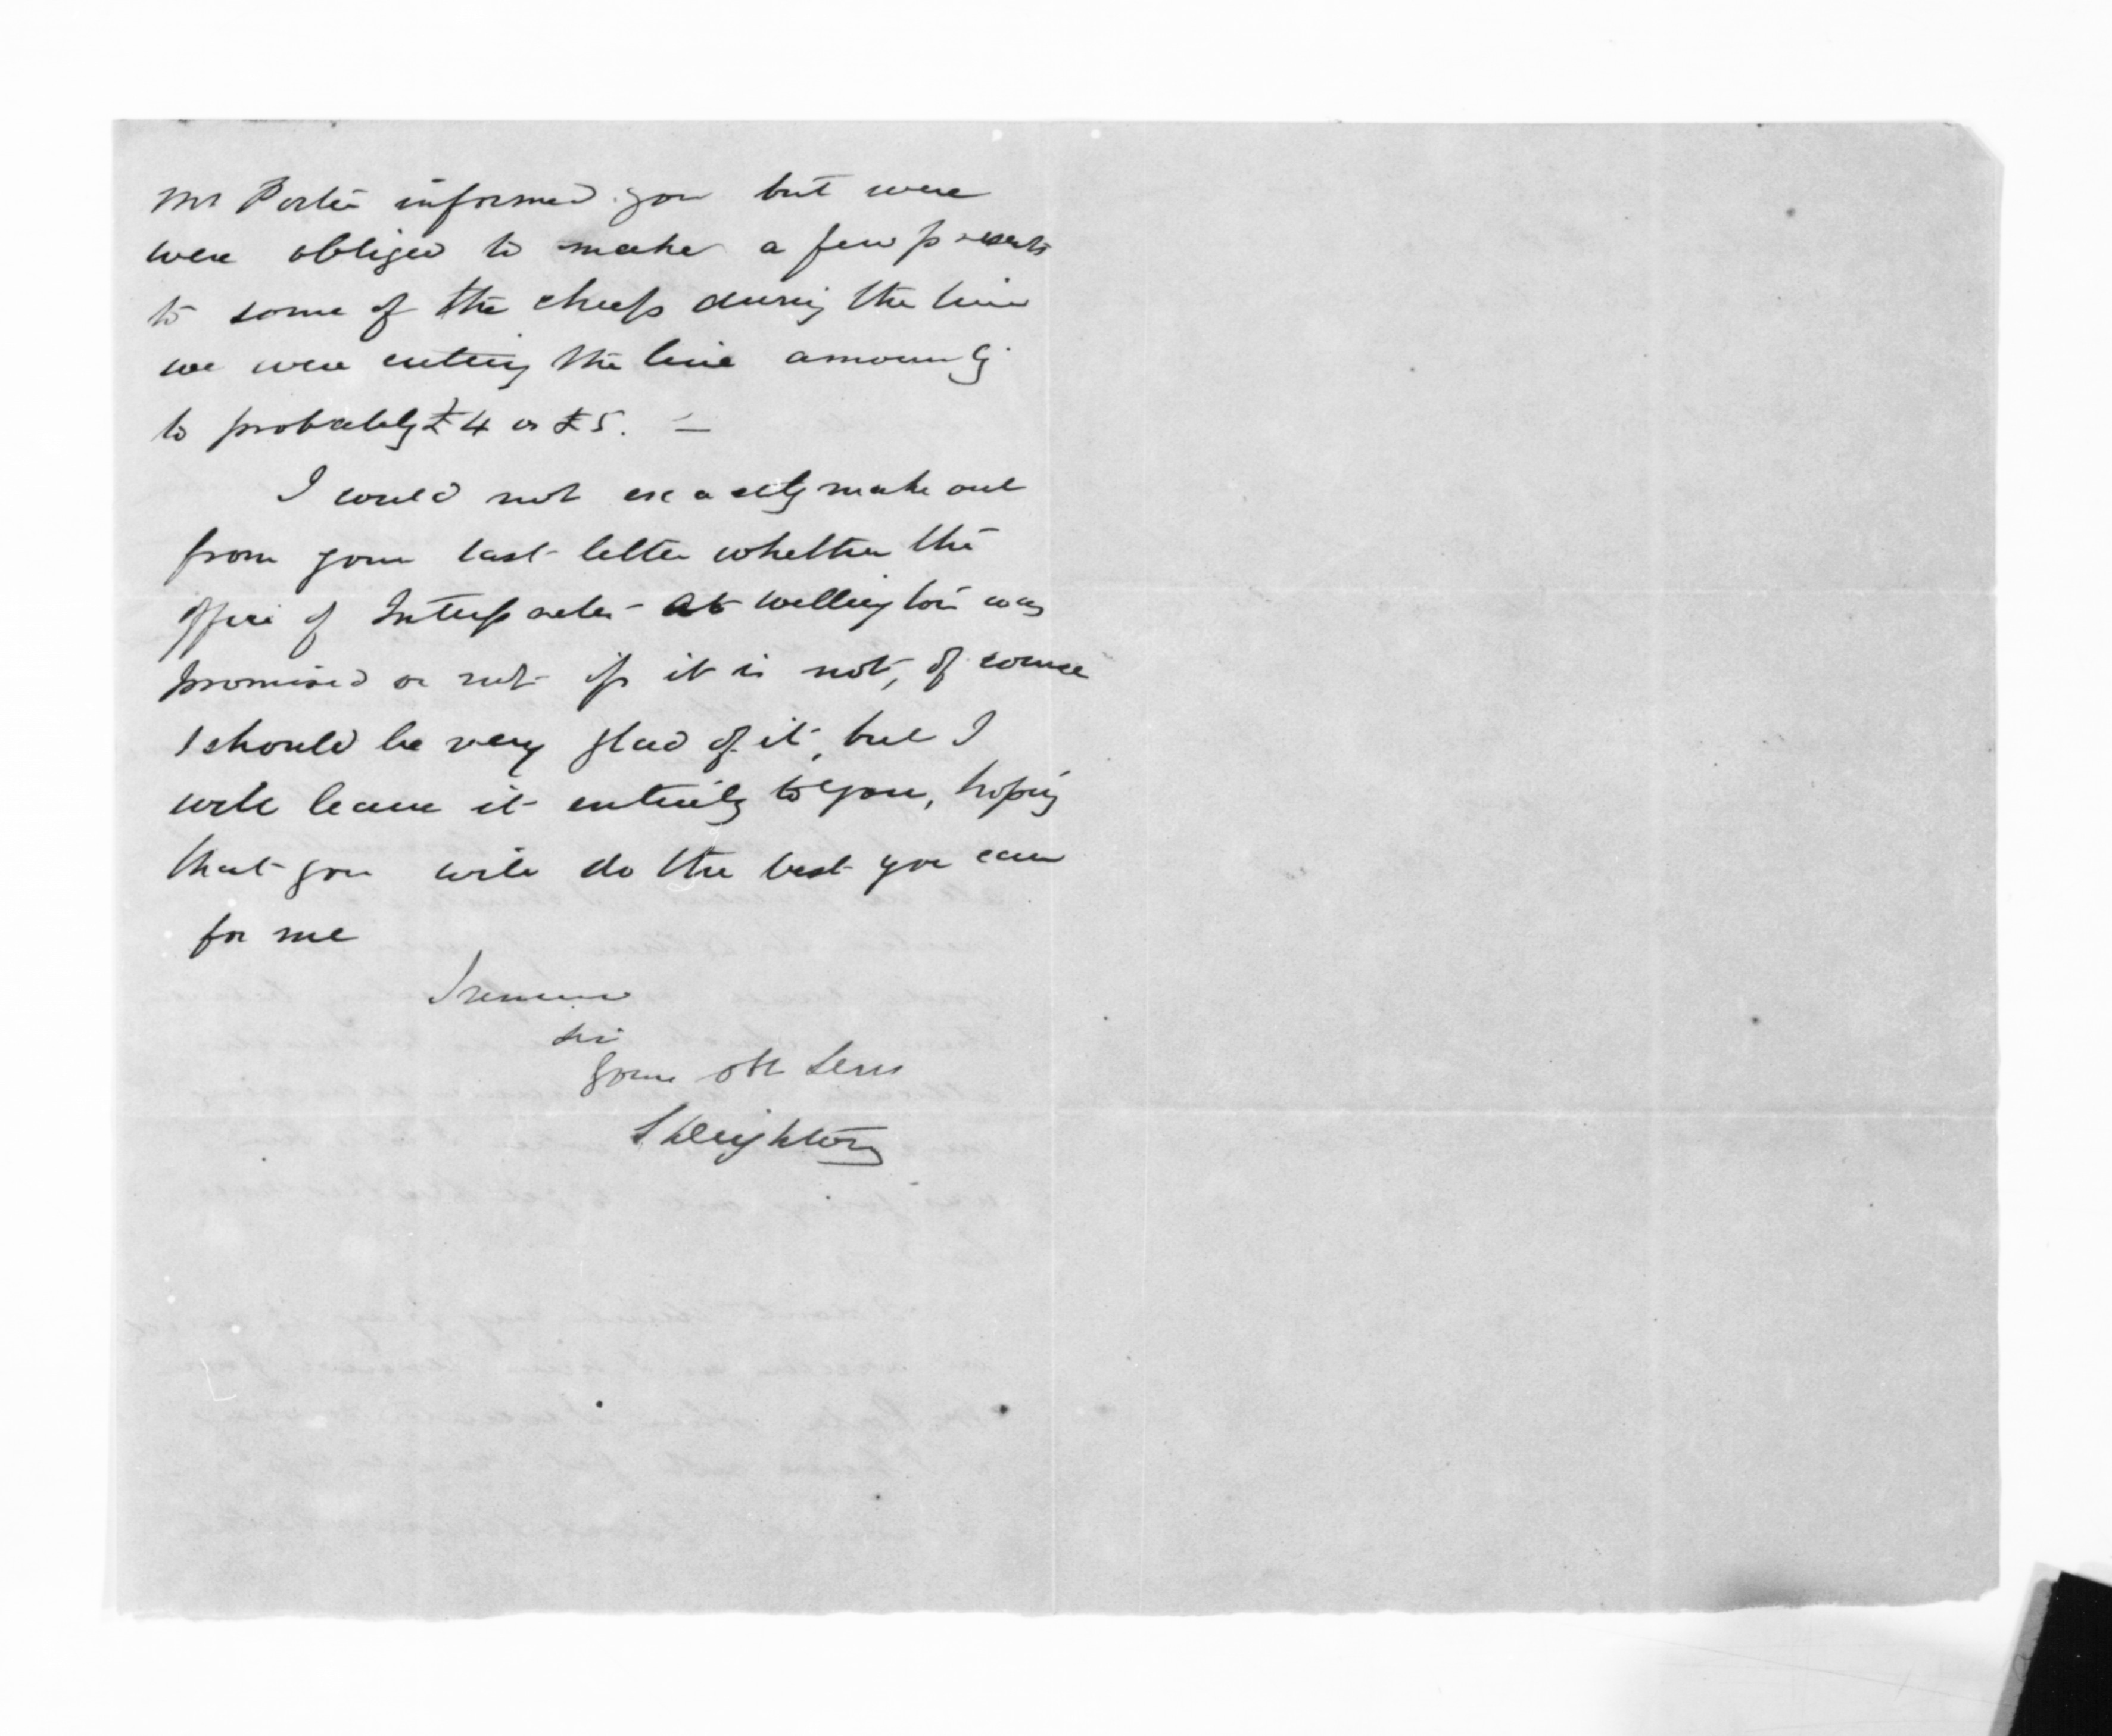 Mr Porter informed you but were
were obliged to make a few presents
to some of the chiefs during the time
we were cutting the line amountg
to probably £4 or £5. —
I could not exactly make out
from your last letter whether the
office of Interpreter at Wellington was
promised or not if it is not, of course
I should be very glad of it, but I
will leave it entirely to you, hoping
that you will do the best you can
for me
I remain
Sir
Your Obt Servt
S Deighton